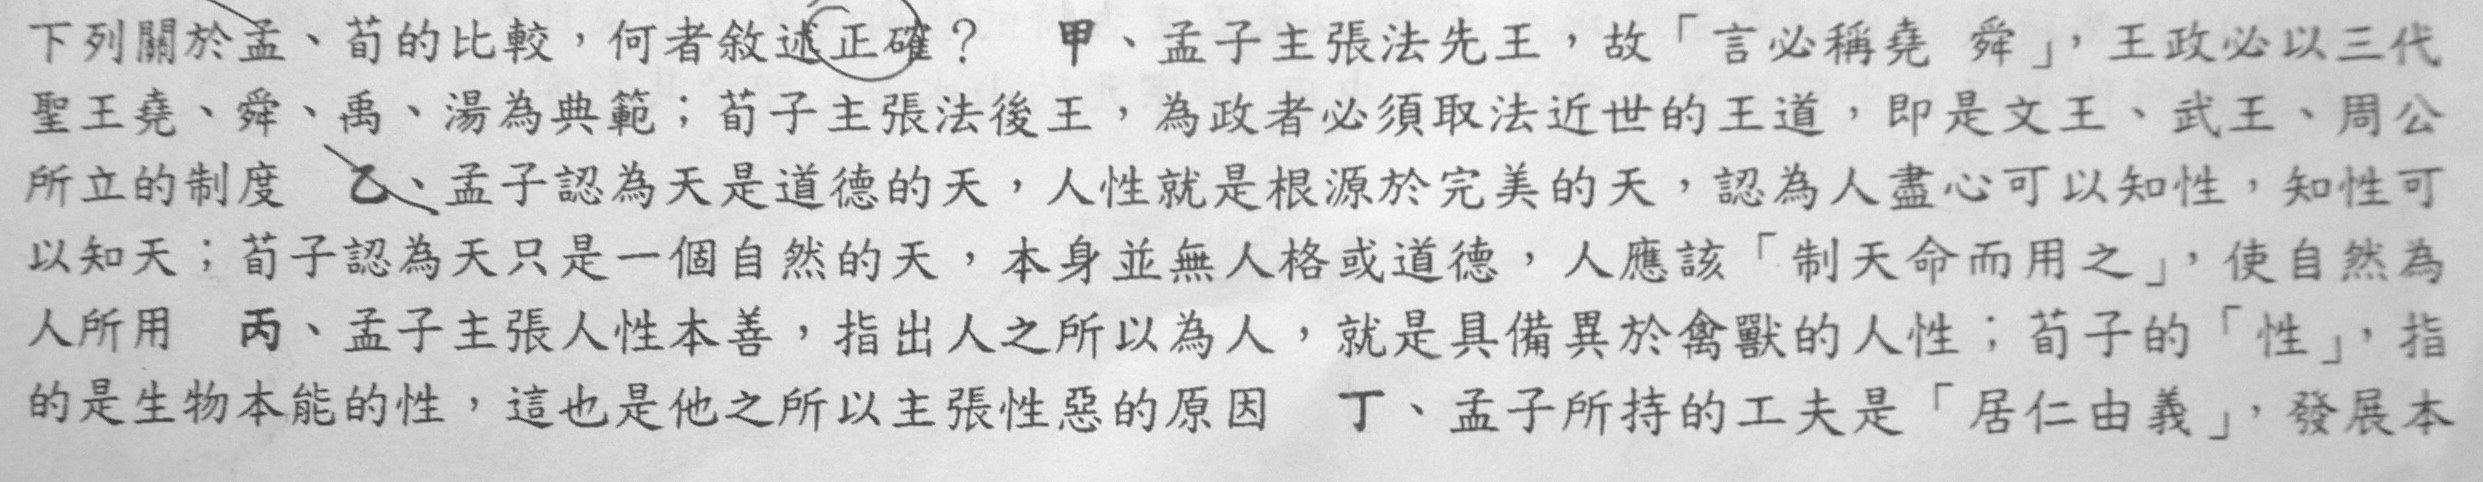 下列關於孟、荀的比較，何者敘述正確？　甲、孟子主張法先王，故「言必稱堯 舜」，王政必以三代
聖王堯、舜、禹、湯為典範；荀子主張法後王，為政者必須取法近世的王道，即是文王、武王、周公
所立的制度　乙、孟子認為天是道德的天，人性就是根源於完美的天，認為人盡心可以知性，知性可
以知天；荀子認為天只是一個自然的天，本身並無人格或道德，人應該「制天命而用之」，使自然為
人所用　丙、孟子主張人性本善，指出人之所以為人，就是具備異於禽獸的人性；荀子的「性」，指
的是生物本能的性，這也是他之所以主張性惡的原因　丁、孟子所持的工夫是「居仁由義」，發展本